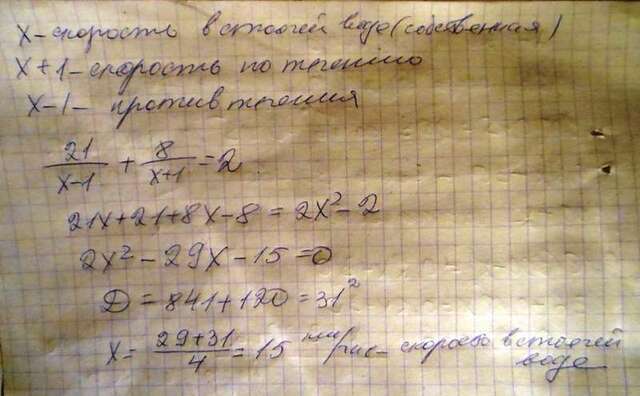 x - скорость в стоячей воде (собственная)
x+1 - скорость по течению
x-1 - против течения
21/(x-1) + 8/(x+1) = 2
21x+21+8x-8 = 2x²-2
2x²-29x-15=0
D = 841+120 = 31²
x = (29+31)/4 = 15 км/час - скорость в стоячей воде